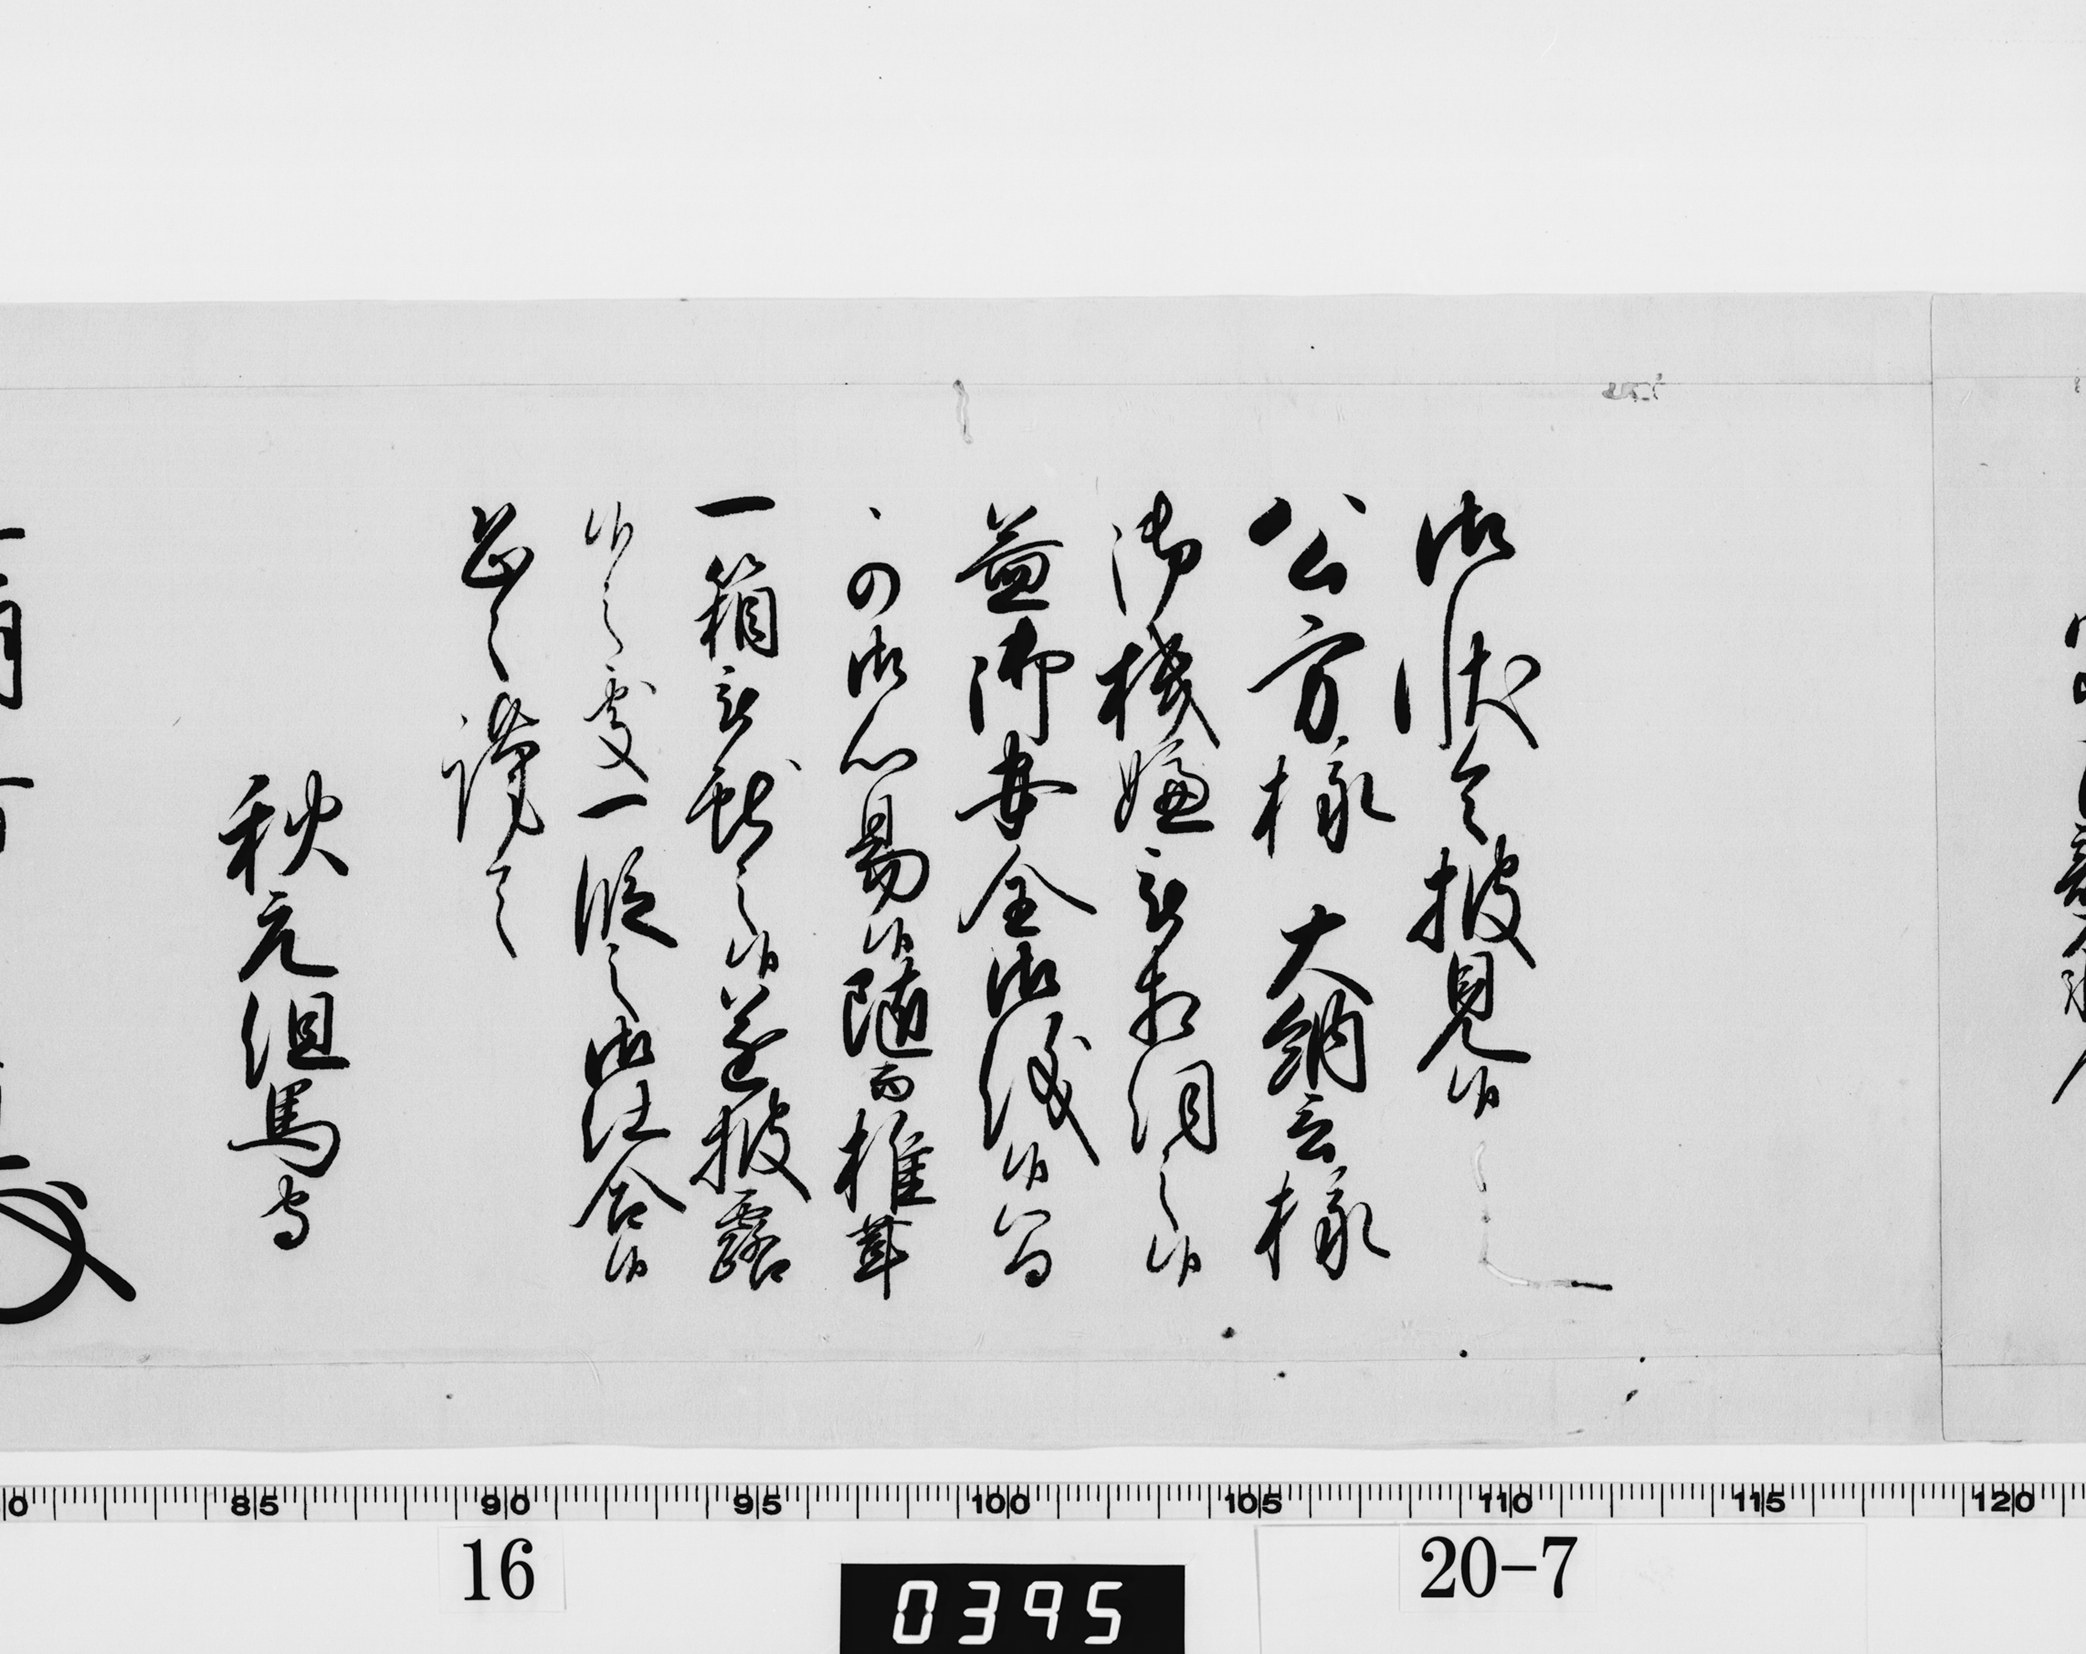 御状令披見候
公方様 大納言様
御機嫌被相伺之候
益御安全御儀候間
可御心易候随而椎茸
一箱被献之候遂披露
候之処一段之御仕合候
恐々謹言
秋元但馬守
85
90
95
100
105
110
115
120
16
20-7
0395